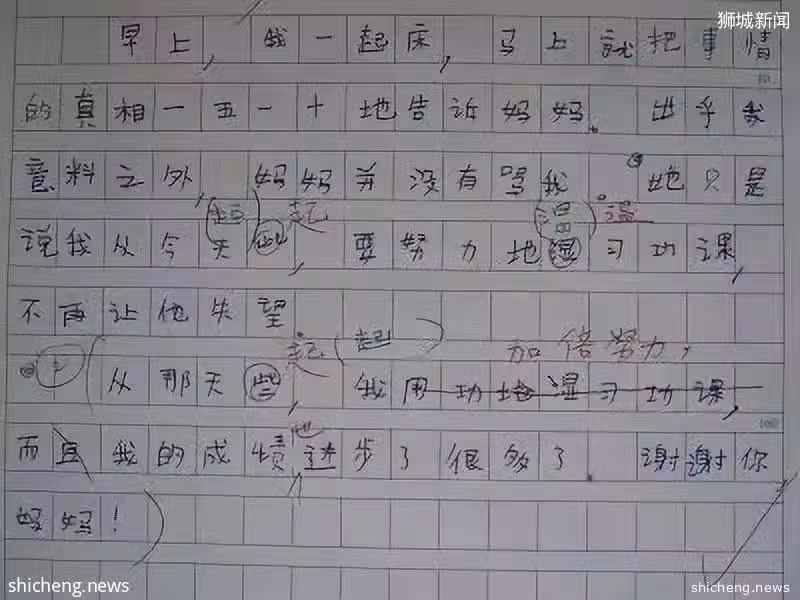 狮城新闻
早上，我一起床，马上就把事情
的真相一五一十地告诉妈妈。出乎我
意料之外，妈妈并没有骂我。她只是
起 起 温 温
说我从今天些，要努力地湿习功课，
不再让他失望
起（起） 加倍努力，
从那天些，我用功地湿习功课，
也
而且我的成绩进步了很多了。谢谢你
妈妈！
shicheng.news
shicheng.news